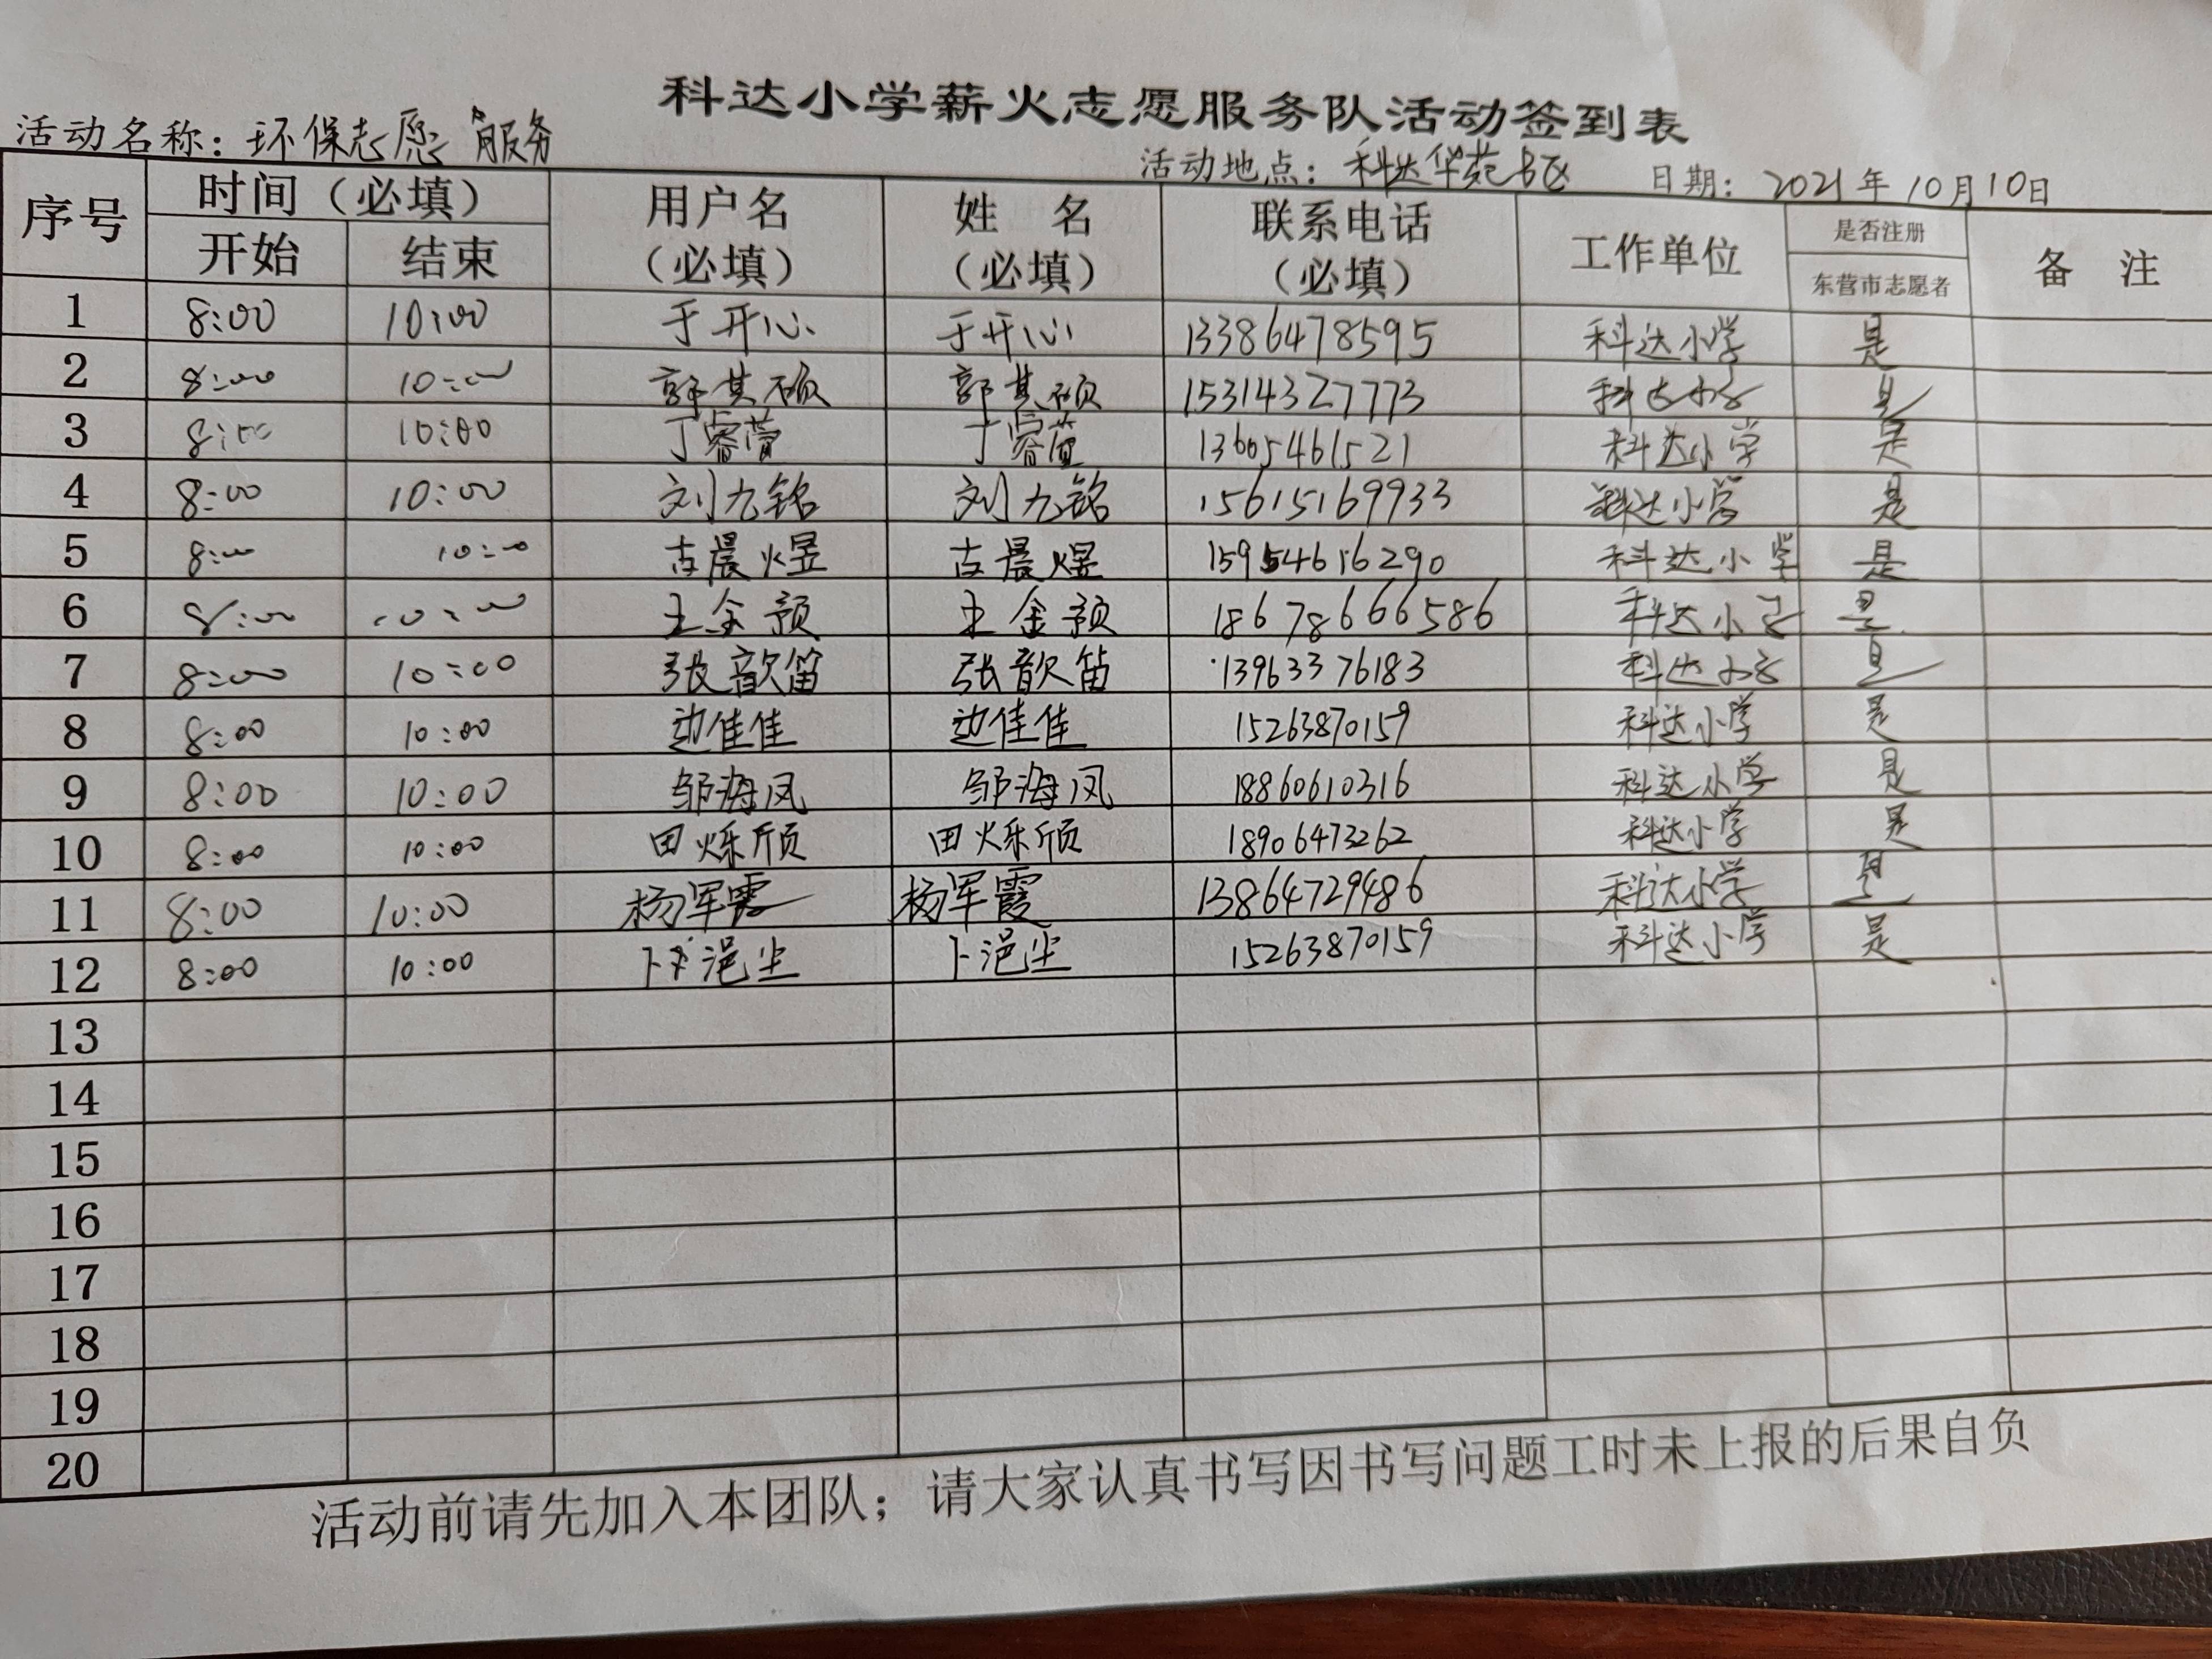 科达小学薪火志愿服务队活动签到表
活动名称：环保志愿服务 活动地点：科达华苑B区 日期：2021年10月10日
序号 时间（必填） 用户名（必填） 姓 名（必填） 联系电话（必填） 工作单位 是否注册 东营市志愿者 备 注
开始 结束
1 8:00 10:00 于开心 于开心 13386478595 科达小学 是
2 8:00 10:00 郭其硕 郭其硕 15314327773 科达小学 是
3 8:00 10:00 丁睿萱 丁睿萱 13605461521 科达小学 是
4 8:00 10:00 刘九铭 刘九铭 15615169933 科达小学 是
5 8:00 10:00 古晨煜 古晨煜 15954616290 科达小学 是
6 8:00 10:00 王金预 王金预 18678666586 科达小学 是
7 8:00 10:00 张歆笛 张歆笛 13963376183 科达小学 是
8 8:00 10:00 边佳佳 边佳佳 15263870159 科达小学 是
9 8:00 10:00 邹海凤 邹海凤 18860610316 科达小学 是
10 8:00 10:00 田烁颀 田烁颀 18906473262 科达小学 是
11 8:00 10:00 杨军霞 杨军霞 13864729486 科达小学 是
12 8:00 10:00 卜浥尘 卜浥尘 15263870159 科达小学 是
13
14
15
16
17
18
19
20
活动前请先加入本团队；请大家认真书写因书写问题工时未上报的后果自负